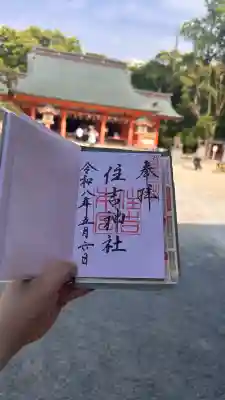 奉拝
住吉神社
令和八年五月六日